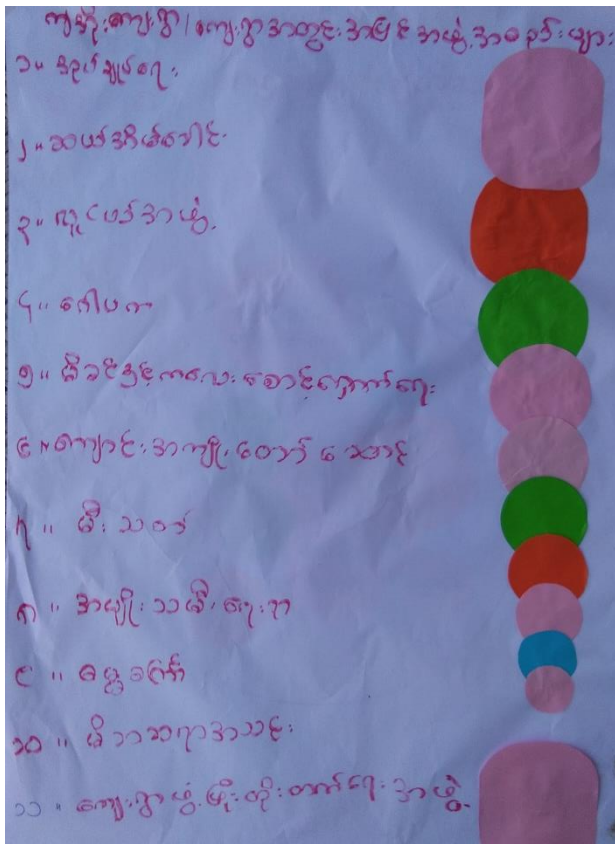 ကျအိုးကျေးရွာ/ကျေးရွာအတွင်းအပြင်အဖွဲ့အစည်းများ
၁။ အုပ်ချုပ်ရေး
၂။ ဆယ်အိမ်ခေါင်း
၃။ လူငယ်အဖွဲ့
၄။ ဂေါပက
၅။ မိခင်နှင့်ကလေးစောင့်ရှောက်ရေး
၆။ ကျောင်းအကျိုးတော်ဆောင်
၇။ မီးသတ်
၈။ အမျိုးသမီးရေးရာ
၉။ ဓမ္မစကြာ
၁၀။ မိဘဆရာအသင်း
၁၁။ ကျေးရွာဖွံ့ဖြိုးတိုးတက်ရေးအဖွဲ့